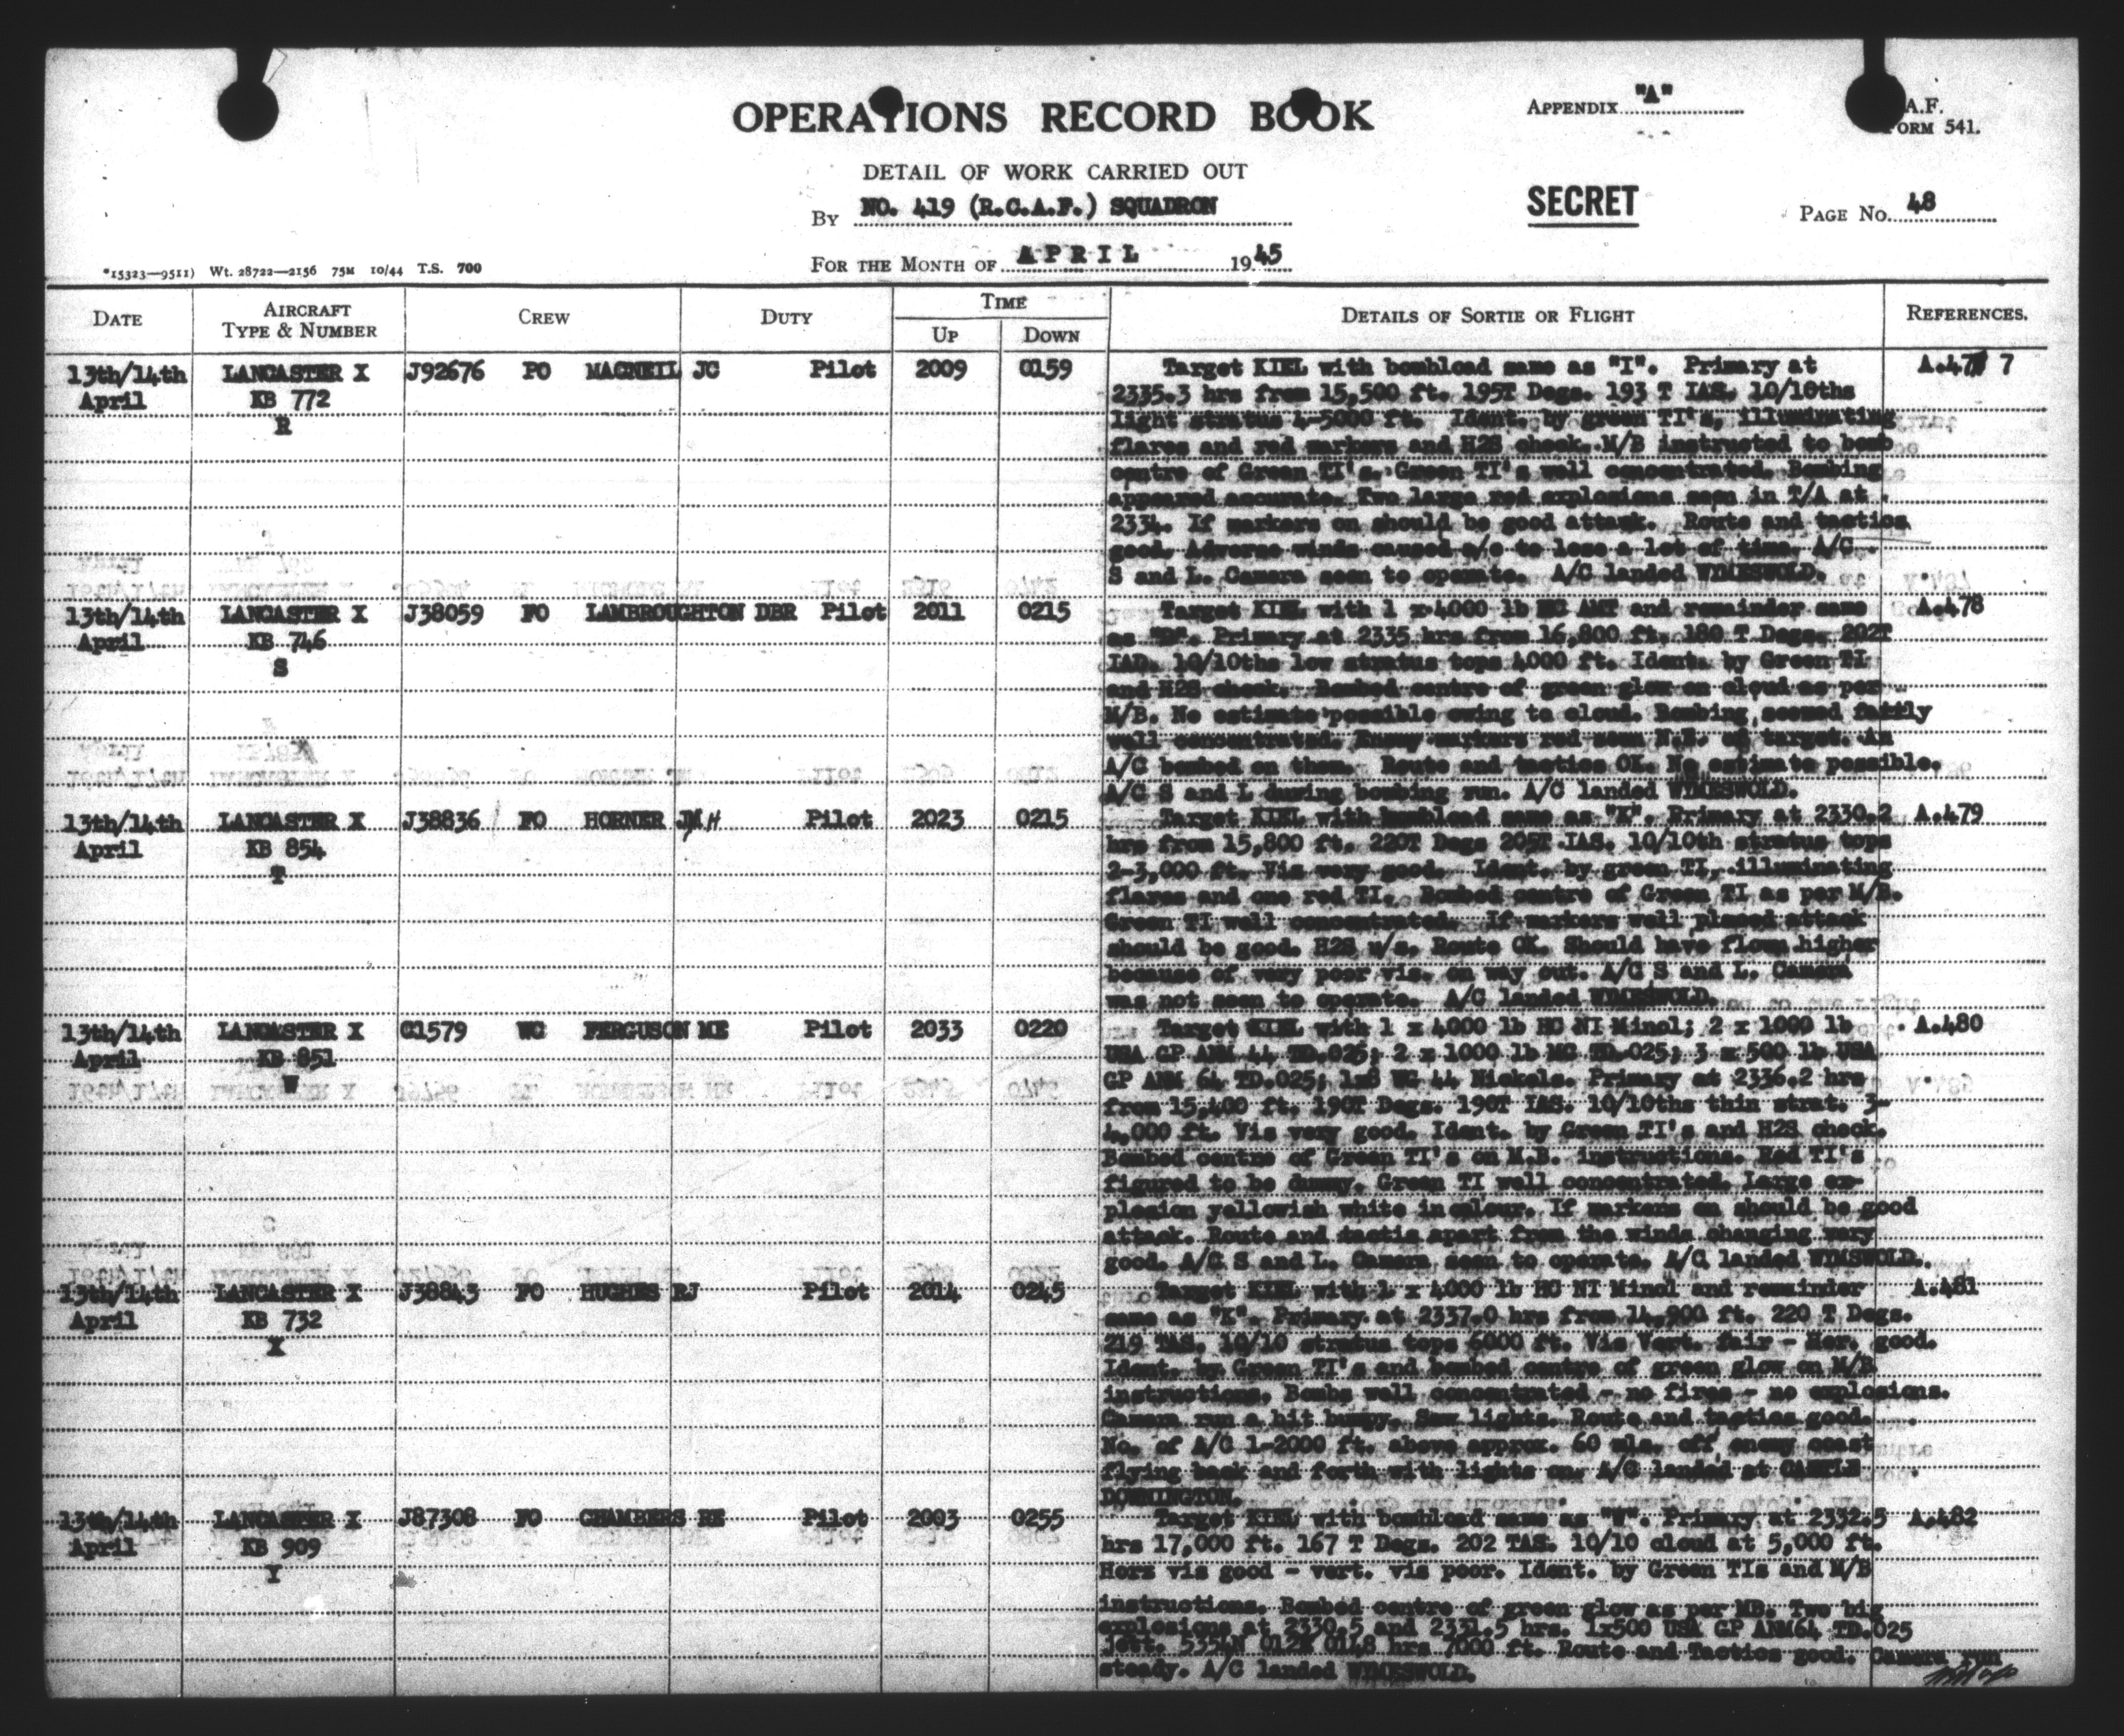 OPERATIONS RECORD BOOK
APPENDIX "A"
A.F.
FORM 541.
DETAIL OF WORK CARRIED OUT
BY NO. 419 (R.C.A.F.) SQUADRON
SECRET
PAGE NO. 48
FOR THE MONTH OF APRIL 1945
*15323—9511) Wt. 28722—2156 75M 10/44 T.S. 700
DATE
AIRCRAFT
TYPE & NUMBER
CREW
DUTY
TIME
UP
DOWN
DETAILS OF SORTIE OR FLIGHT
REFERENCES.
13th/14th LANCASTER X J92676 FO MACNEIL JC Pilot 2009 0159
April KB 772
R
Target KIEL with bombload same as "I". Primary at A.477
2335.3 hrs from 15,500 ft. 195T Degs. 193 T IAS. 10/10ths
light stratus 4-5000 ft. Ident. by green TI's, illuminating
flares and red markers and H2S check. M/B instructed to bomb
centre of Green TI's. Green TI's well concentrated. Bombing
appeared accurate. Two large red explosions seen in T/A at
2334. If markers on should be good attack. Route and tactics
good. Adverse winds caused a/c to lose a lot of time. A/C
S and L. Camera seen to operate. A/C landed WYMESWOLD.
13th/14th LANCASTER X J38059 FO LAMBROUGHTON DBR Pilot 2011 0215
April KB 746
S
Target KIEL with 1 x 4000 lb HC AMT and remainder same A.478
as "D". Primary at 2335 hrs from 16,800 ft. 180 T Degs. 202T
IAD. 10/10ths low stratus tops 4000 ft. Ident. by Green TI
and H2S check. Bombed centre of green glow on cloud as per
M/B. No estimate possible owing to cloud. Bombing seemed fairly
well concentrated. Enemy markers red seen N.E. of target. An
A/C bombed on them. Route and tactics OK. No estimate possible.
A/C S and L during bombing run. A/C landed WYMESWOLD.
13th/14th LANCASTER X J38836 FO HORNER JH Pilot 2023 0215
April KB 854
T
Target KIEL with bombload same as "K". Primary at 2330.2 A.479
hrs from 15,800 ft. 220T Degs 205T IAS. 10/10th stratus tops
2-3,000 ft. Vis very good. Ident. by green TI, illuminating
flares and one red TI. Bombed centre of Green TI as per M/B.
Green TI well concentrated. If markers well placed attack
should be good. H2S u/s. Route OK. Should have flown higher
because of very poor vis. on way out. A/C S and L. Camera
was not seen to operate. A/C landed WYMESWOLD.
13th/14th LANCASTER X C1579 WC FERGUSON ME Pilot 2033 0220
April KB 851
W
Target KIEL with 1 x 4000 lb HC NI Minol; 2 x 1000 lb A.480
USA GP ANM 44 TD.025; 2 x 1000 lb MC TD.025; 3 x 500 lb USA
GP ANM 64 TD.025; 1x8 WG 44 Nickels. Primary at 2336.2 hrs
from 15,400 ft. 190T Degs. 190T IAS. 10/10ths thin strat. 3-
4,000 ft. Vis very good. Ident. by Green TI's and H2S check.
Bombed centre of Green TI's on M.B. instructions. Red TI's
figured to be dummy. Green TI well concentrated. Large ex-
plosion yellowish white in colour. If markers on should be good
attack. Route and tactis apart from the winds changing very
good. A/C S and L. Camera seen to operate. A/C landed WYMSWOLD.
13th/14th LANCASTER X J38843 FO HUGHES RJ Pilot 2014 0245
April KB 732
X
Target KIEL with 1 x 4000 lb HC NI Minol and remainder A.481
same as "K". Primary at 2337.0 hrs from 14,900 ft. 220 T Degs.
219 TAS. 10/10 stratus tops 6000 ft. Vis Vert. fair - Hor. good.
Ident. by Green TI's and bombed centre of green glow on M/B
instructions. Bombs well concentrated - no fires - no explosions.
Camera run a bit bumpy. Saw lights. Route and tactics good.
No. of A/C 1-2000 ft. above approx. 60 mls. off enemy coast
flying back and forth with lights on. A/C landed at CASTLE
DONNINGTON.
13th/14th LANCASTER X J87308 FO CHAMBERS RE Pilot 2003 0255
April KB 909
Y
Target KIEL with bombload same as "W". Primary at 2332.5 A.482
hrs 17,000 ft. 167 T Degs. 202 TAS. 10/10 cloud at 5,000 ft.
Horz vis good - vert. vis poor. Ident. by Green TIs and M/B
instructions. Bombed centre of green glow as per MB. Two big
explosions at 2330.5 and 2331.5 hrs. 1x500 USA GP ANM64 TD.025
jett. 5354N 012E 0148 hrs 7000 ft. Route and Tactics good. Camera run
steady. A/C landed WYMESWOLD.